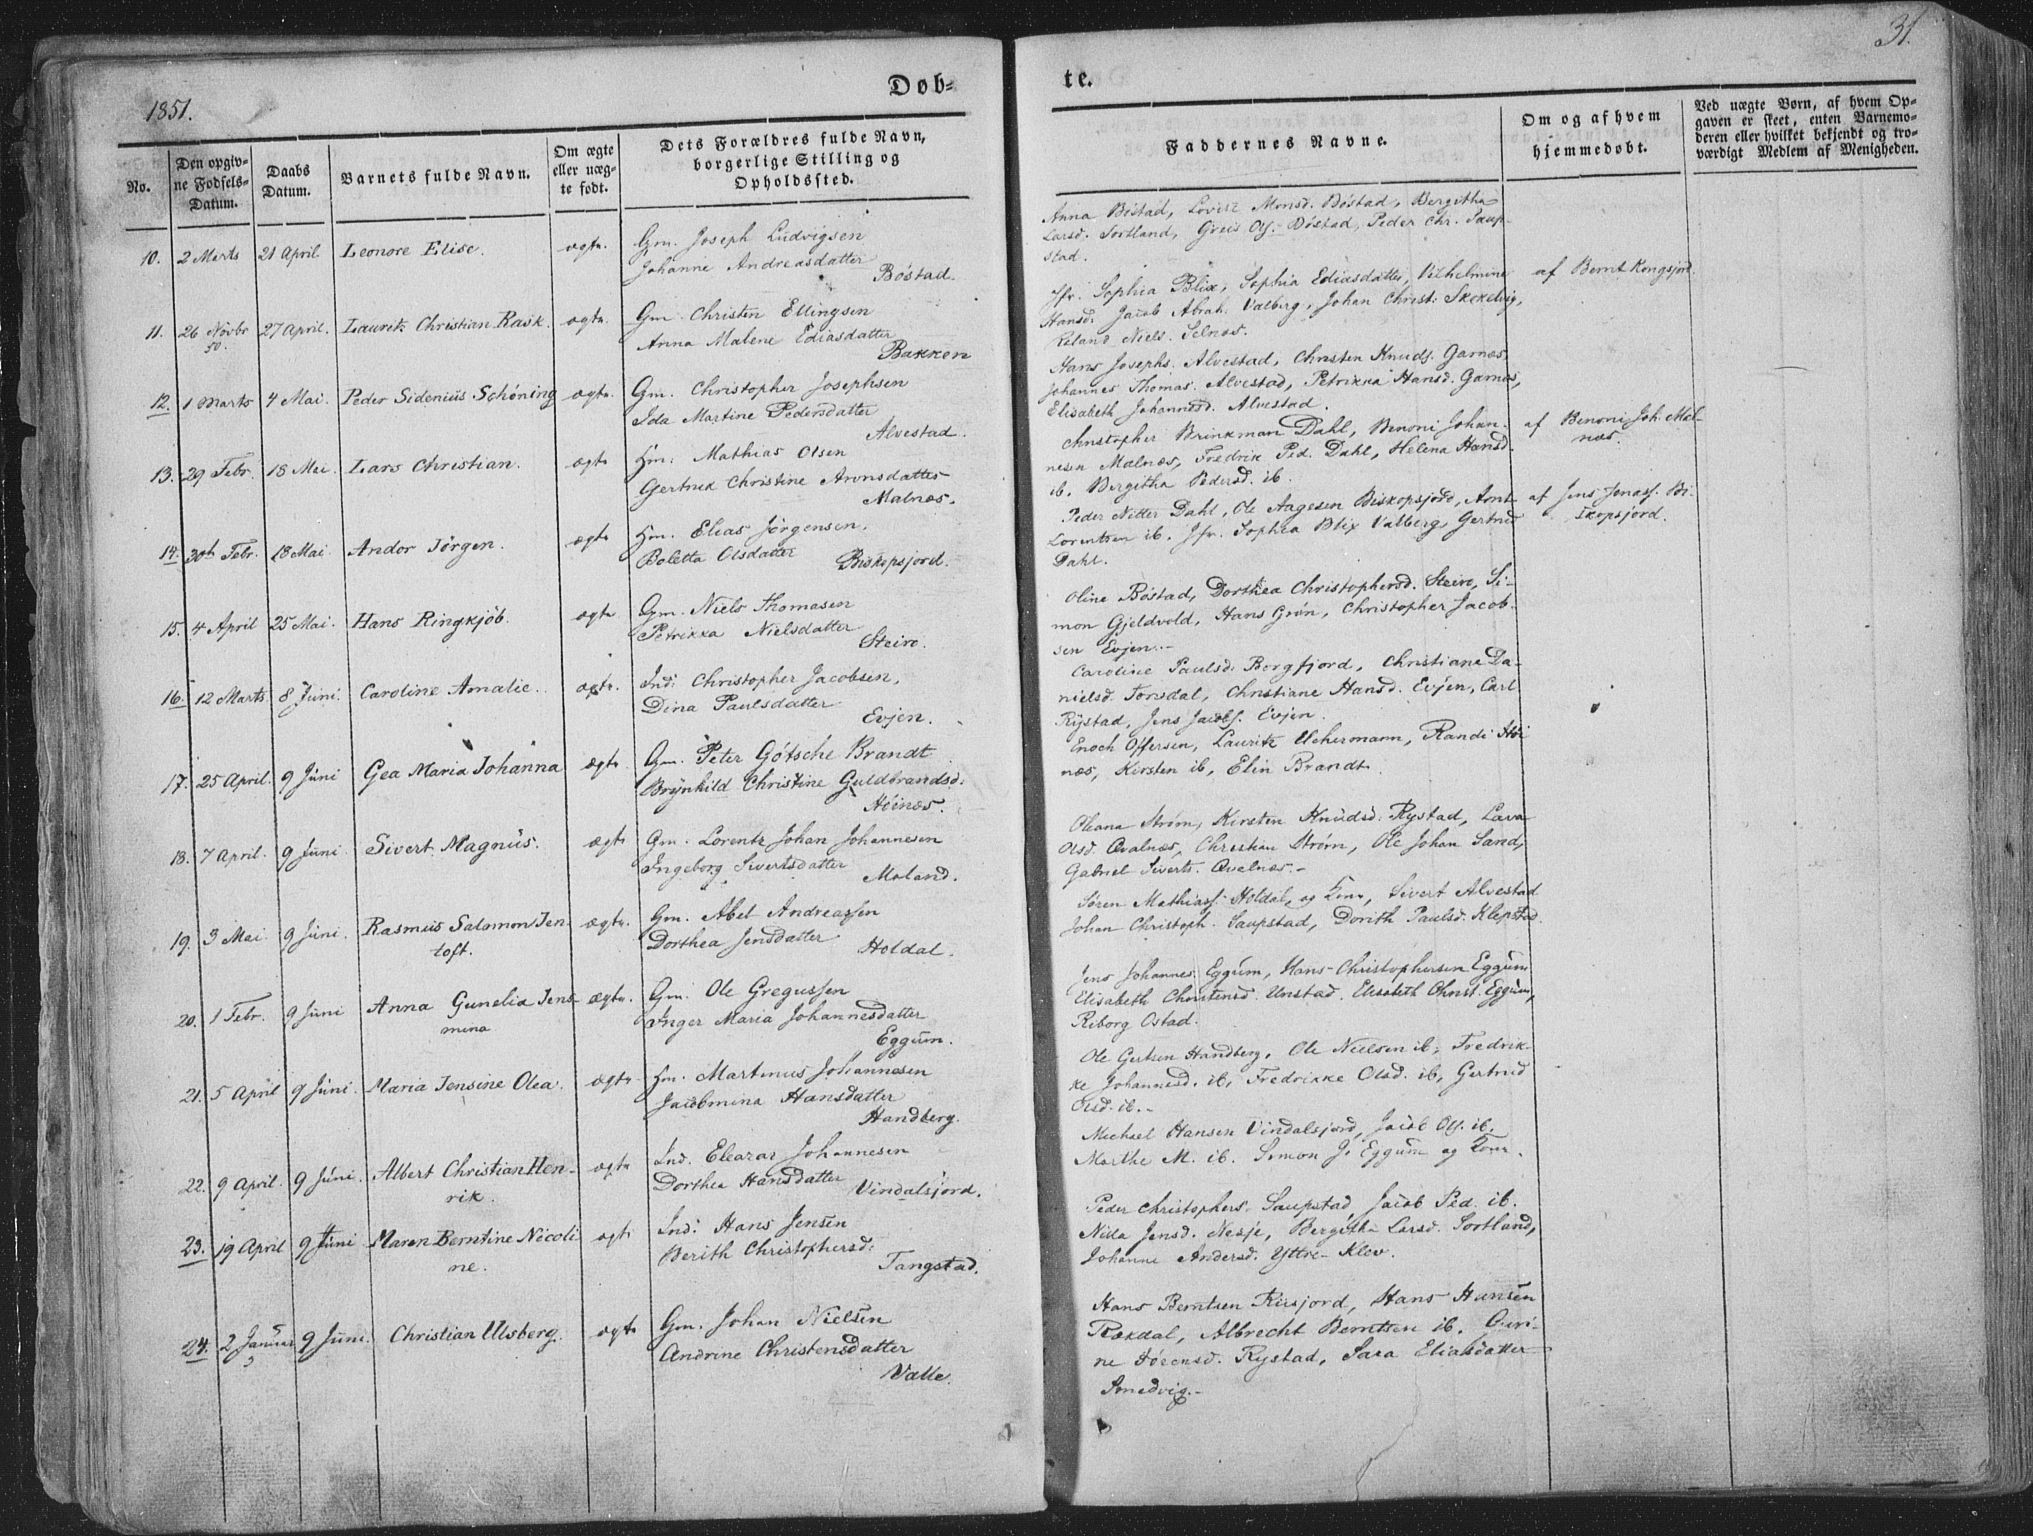 1851.
Døb-
No.
Den opgiv-
ne Fødsels-
Datum.
Daabs
Datum.
Barnets fulde Navn.
Om ægte
eller uæg-
te født.
Dets Forældres fulde Navn,
borgerlige Stilling og
Opholdssted.
10. 2 Marts 21 April Leonore Elise. ægte.
Gm. Joseph Ludvigsen
Johanne Andreasdatter
Bøstad.
11. 26 Novbr 27 April. Lauritz Christian Rask. ægte.
50.
Gm. Christen Ellingsen
Anna Malene Ediasdatter
Bakken
12. 1 Marts 4 Mai. Peder Sidenius Schøning ægte.
Gm. Christopher Josephsen
Ida Martine Pedersdatter
Alvestad.
13. 29 Febr. 18 Mai Lars Christian. ægte
Hm. Mathias Olsen
Gertrud Christine Aronsdatter
Malnæs.
14. Febr. 18 Mai Andor Jørgen. ægte
Hm. Elias Jørgensen,
Boletta Olsdatter
Biskopsjord.
15. 4 April 25 Mai. Hans Ringkjøb. ægte
Gm. Niels Thomasen
Petrikka Nielsdatter
Steiro.
16. 12 Marts 8 Juni. Caroline Amalie. ægte.
Ind: Christopher Jacobsen,
Dina Paulsdatter
Evjen.
17. 25 April. 9 Juni Gea Maria Johanna ægte.
Gm. Peter Götsche Brandt
Brynhild Christine Guldbrandsd:
Høinæs.
18. 7 April. 9 Juni Sivert Magnus. ægte
Gm. Lorentz Johan Johannesen
Ingeborg Sivertsdatter
Moland.
19. 3 Mai 9 Juni. Rasmus Salomon Jen- ægte.
toft.
Gm. Abel Andreassen
Dorthea Jensdatter
Holdal.
20. 1 Febr. 9 Juni Anna Gunelia Jens- ægte.
mina
Gm. Ole Gregussen
Inger Maria Johannesdatter
Eggum.
21. 5 April 9 Juni. Maria Jensine Olea. ægte
Hm. Martinus Johannesen
Jacobmina Hansdatter
Handberg.
22. 9 April. 9 Juni. Albert Christian Hen- ægte
rik.
Ind. Eleazar Johannesen
Dorthea Hansdatter
Vindalsjord.
23. 19 April 9 Juni Maren Berntine Nicoli ægte
ne.
Ind: Hans Jensen
Berith Christophersd:
Tangstad.
24. 2 Januar 9 Juni. Christian Ulsberg. ægte
Gm. Johan Nielsen
Andrine Christensdatter
Valle.
31.
te.
Faddernes Navne.
Om og af hvem
hjemmedøbt.
Ved uægte Børn, af hvem Op-
gaven er skeet, enten Barnemo-
deren eller hvilket bekjendt og tro-
værdigt Medlem af Menigheden.
Anna Bøstad, Mons. Bøstad, Bergitha
Larsd. Sortland, Greis Ols. Bøstad, Peder Chr. Saup-
stad.
Jfr. Sophia Blix, Sophia Ediasdatter, Vilhelmine
Hansd. Jacob Abrah. Valberg, Johan Christ:
Niels. Selnæs.
af Bernt Kongsjord.
Hans Josephs. Alvestad, Christen Knuds. Garnæs,
Johannes Thomas. Alvestad, Petrikka Hansd. Garnæs,
Elisabeth Johannesd. Alvestad.
Christopher Brinkman Dahl, Benoni Johan-
nesen Malnæs, Fredrik Ped. Dahl, Helena Hansd.
ib. Bergitha Pedersd. ib.
af Benoni Joh. Mal-
næs.
Peder Nitter Dahl, Ole Aagesen Biskopsjord, Arnt
Lorentsen ib. Jfr. Sophia Blix Valberg, Gertrud
Dahl.
af Jens Jonass. Bi-
skopsjord.
Oline Bøstad, Dorthea Christophersd. Steiro, Si-
mon Gjeldvold, Hans Grøn, Christopher Jacob-
sen Evjen.
Caroline Paulsd. Borgfjord, Christiane Da-
nielsd. Torsdal, Christiane Hansd. Evjen, Carl
Rystad, Jens Jacobs. Evjen.
Enoch Offersen, Lauritz Uchermann, Randi Høi
næs, Kirsten ib, Elin Brandt.
Oleana Strøm, Kirsten Knudsd. Rystad, Lava
Olsd. Qvalnæs, Christian Strøm, Ole Johan Sand,
Gabriel Siverts. Qvalnæs.
Søren Mathiass. Holdal, og Kone, Sivert Alvestad
Johan Christoph. Saupstad, Dorith Paulsd. Klepstad.
Jens Johannes. Eggum, Hans Christophersen Eggum
Elisabeth Christensd. Unstad. Elisabeth Christ. Eggum,
Reborg Ostad.
Ole Gertsen Handberg, Ole Nielsen ib, Fredrik-
ke Johannesd. ib, Fredrikke Olsd. ib, Gertrud
Olsd. ib.
Michael Hansen Vindalsjord, Jacob Ols. ib.
Marthe M. ib. Simon J. Eggum og Kone.
Peder Christophers. Saupstad Jacob Ped. ib.
Nilla Jensd. Nesje, Bergitha Larsd. Sortland,
Johanne Andersd. Yttre-Klev.
Hans Berntsen Rusjord, Hans Hansen
Rækdal, Albrecht Berntsen ib. Guri-
ne Sørensd. Rystad, Sara Eliasdatter